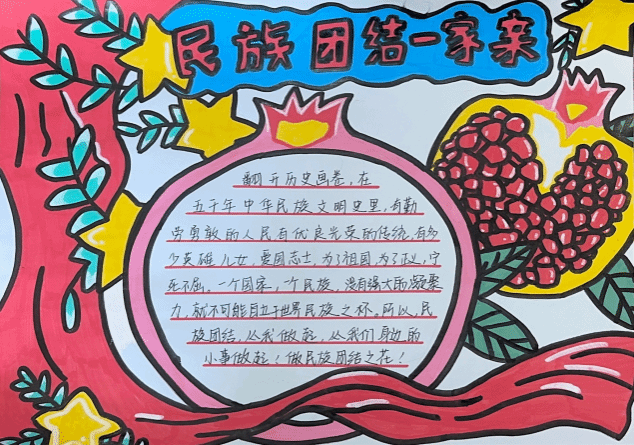 民族团结一家亲
翻开历史画卷，在
五千年中华民族文明史里，有勤
劳勇敢的人民有优良光荣的传统，有多
少英雄儿女，爱国志士，为了祖国为了正义，宁
死不屈。一个国家，一个民族，没有强大的凝聚
力，就不可能自立于世界民族之林。所以，民
族团结，从我做起，从我们身边的
小事做起！做民族团结之花！